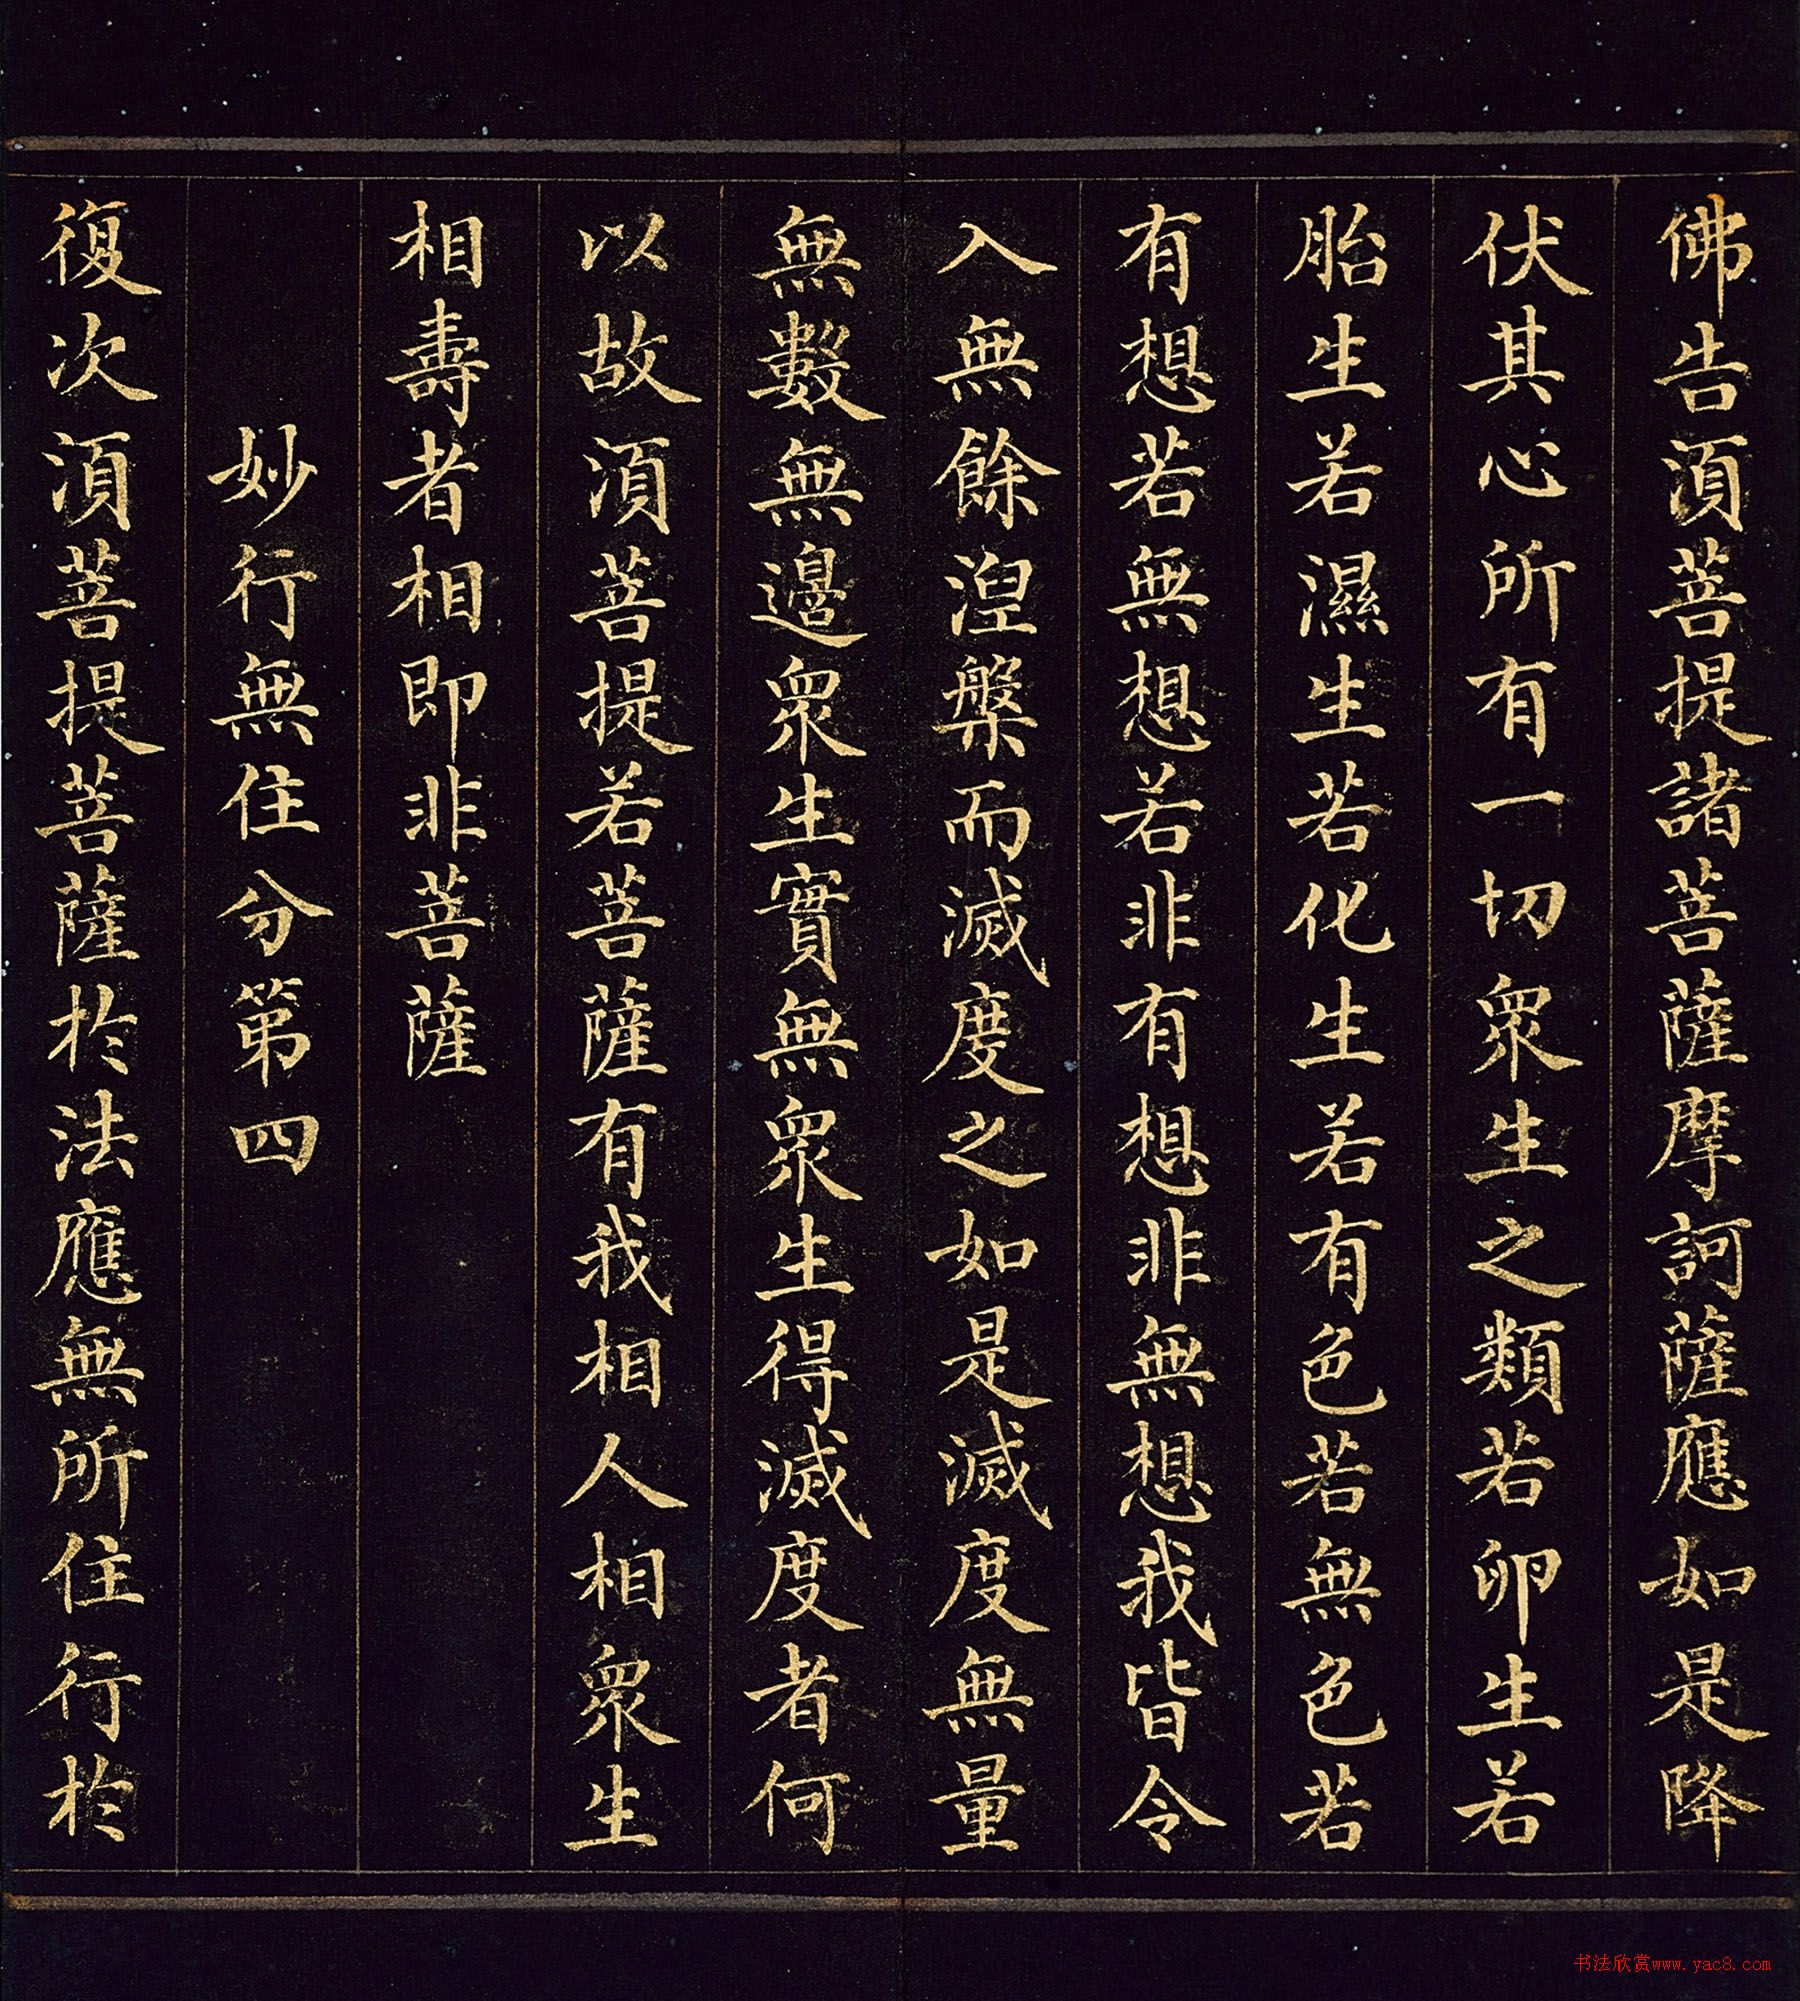 佛告湏菩提諸菩薩摩訶薩應如是降
伏其心所有一切眾生之類若卵生若
胎生若濕生若化生若有色若無色若
有想若無想若非有想非無想我皆令
入無餘涅槃而滅度之如是滅度無量
無數無邊眾生實無眾生得滅度者何
以故湏菩提若菩薩有我相人相眾生
相壽者相即非菩薩
妙行無住分第四
復次湏菩提菩薩於法應無所住行於
书法欣赏www.yac8.com